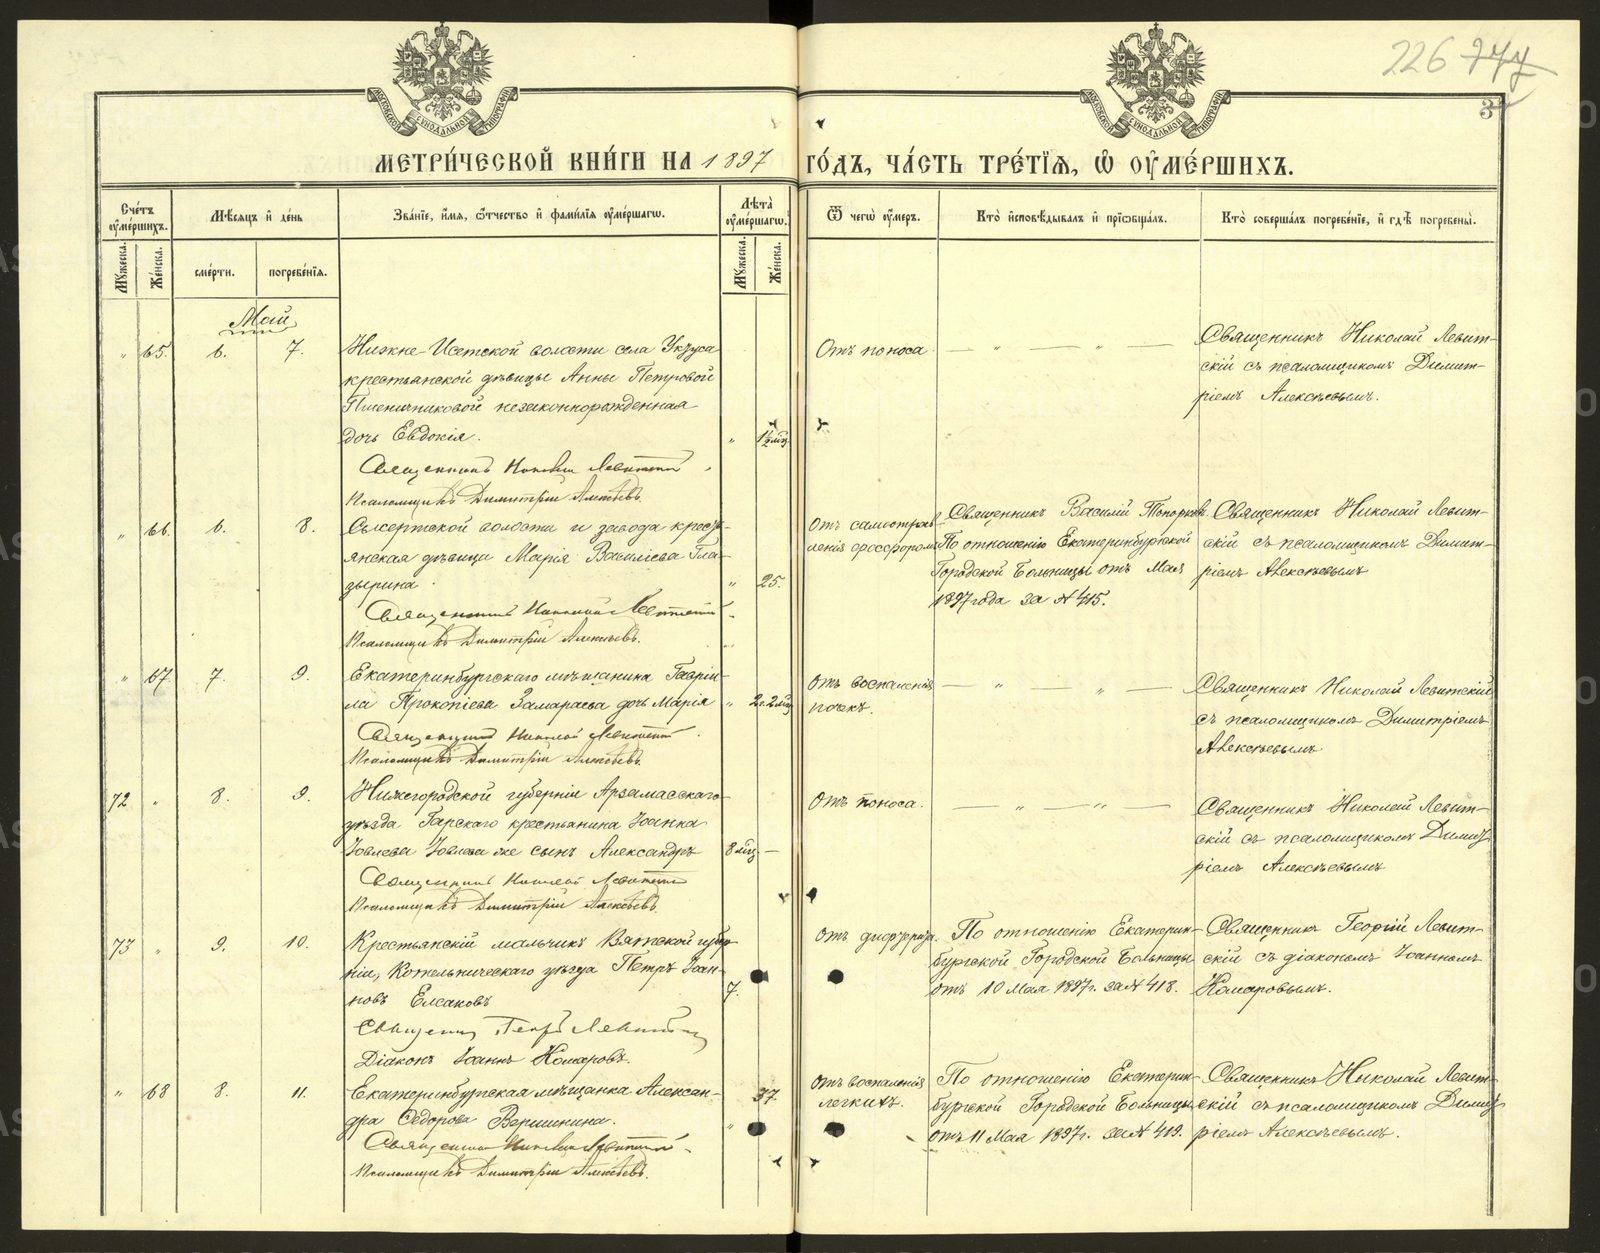 226 777
3
МОСКОВСКОЙ СѴНОДАЛЬНОЙ ТИПОГРАФІИ
МОСКОВСКОЙ СѴНОДАЛЬНОЙ ТИПОГРАФІИ
МЕТРИ́ЧЕСКОЙ КНИ́ГИ НА 1897 ГО́ДЪ, ЧА́СТЬ ТРЕ́ТІѦ, Ѡ ОУ҆МЕ́РШИХЪ.
Сче́тъ оу҆ме́ршихъ.
Мѣсяцъ и҆ де́нь
Зва́ніе, и҆́мя, ѻ҆́тчество и҆ фами́лія оу҆ме́ршагѡ.
Лѣ́та оу҆ме́ршагѡ.
Ѿ чегѡ̀ оу҆́меръ.
Кто̀ и҆сповѣ́дывалъ и҆ пріѡбща́лъ.
Кто̀ соверша́лъ погребе́ніе, и҆ гдѣ̀ погребены̀.
Мꙋ́жеска.
Же́нска.
сме́рти.
погребе́нія.
Мꙋ́жеска.
Же́нска.
Май
" 65. 6. 7. Нижне Исетской волости села Уктуса
крестьянской дѣвицы Анны Петровой
Пшеничниковой незаконнорожденная
дочь Евдокія. " 1½ мѣс.
Священникъ Николай Левитскій
Псаломщикъ Димитрій Алексѣевъ.
Отъ поноса — " — " —
Священникъ Николай Левит-
скій съ псаломщикомъ Димит-
ріемъ Алексѣевымъ.
" 66. 6. 8. Сысертской волости и завода кресть-
янская дѣвица Марія Васильева Гла-
зырина. " 25.
Священникъ Николай Левитскій
Псаломщикъ Димитрій Алексѣевъ.
Отъ самоотрав-
ленія фосфоромъ
Священникъ Василій Топорковъ
По отношенію Екатеринбургской
Городской Больницы отъ Мая
1897 года за № 415.
Священникъ Николай Левит-
скій съ псаломщикомъ Димит-
ріемъ Алексѣевымъ
" 67. 7. 9. Екатеринбургскаго мѣщанина Гаврі-
ла Прокопіева Замараева дочь Марія " 2г. 2 мѣс.
Священникъ Николай Левитскій
Псаломщикъ Димитрій Алексѣевъ.
Отъ воспаленія
почекъ. — " — " —
Священникъ Николай Левитскій
съ псаломщикомъ Димитріемъ
Алексѣевымъ
72 " 8. 9. Нижегородской губерніи Арзамасскаго
уѣзда крестьянина Іоанна
Іовлева Іовлева же сынъ Александръ 8 мѣс. —
Священникъ Николай Левитскій
Псаломщикъ Димитрій Алексѣевъ.
Отъ поноса. — " — " —
Священникъ Николай Левит-
скій съ псаломщикомъ Димит-
ріемъ Алексѣевымъ
73 " 9. 10. Крестьянскій мальчикъ Вятской губер-
ніи, Котельническаго уѣзда Петръ Іоан-
новъ Елсаковъ 7.
Священникъ Георгій Левитскій
Діаконъ Іоаннъ Комаровъ.
Отъ дифтерита.
По отношенію Екатерин-
бургской Городской Больницы
отъ 10 Мая 1897г. за № 418.
Священникъ Георгій Левит-
скій съ діакономъ Іоанномъ
Комаровымъ.
" 68 8. 11. Екатеринбургская мѣщанка Алексан-
дра Ѳедорова Вершинина. " 37.
Священникъ Николай Левитскій
Псаломщикъ Димитрій Алексѣевъ.
Отъ воспаленія
легкихъ.
По отношенію Екатерин-
бургской Городской Больницы
отъ 11 Мая 1897г. за № 419.
Священникъ Николай Левит-
скій съ псаломщикомъ Димит-
ріемъ Алексѣевымъ.